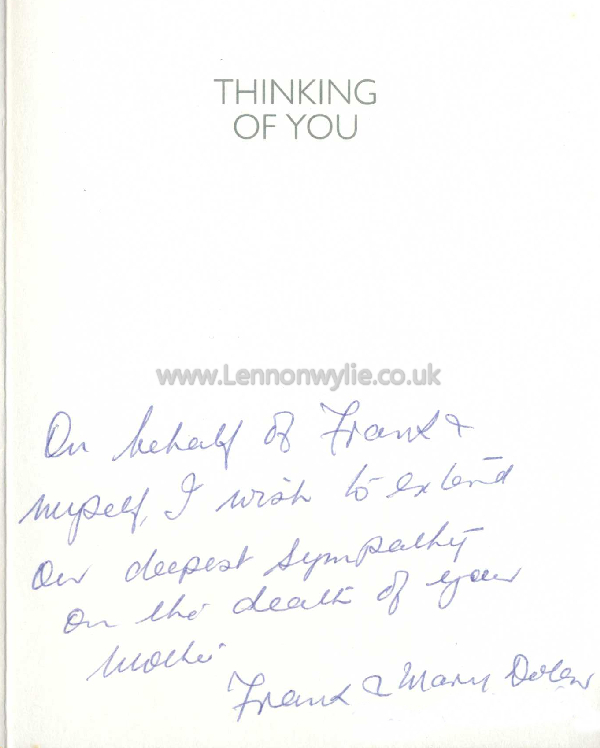 THINKING
OF YOU
www.Lennonwylie.co.uk
On behalf of Frank &
myself, I wish to extend
our deepest sympathy
on the death of your
mother
Frank & Mary